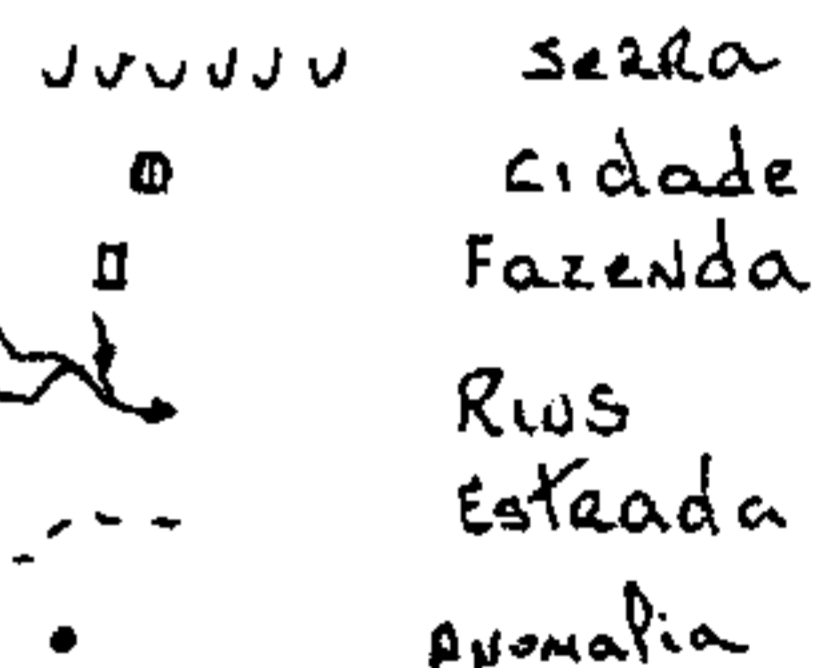 Serra
Cidade
Fazenda
Rios
Estrada
Anomalia